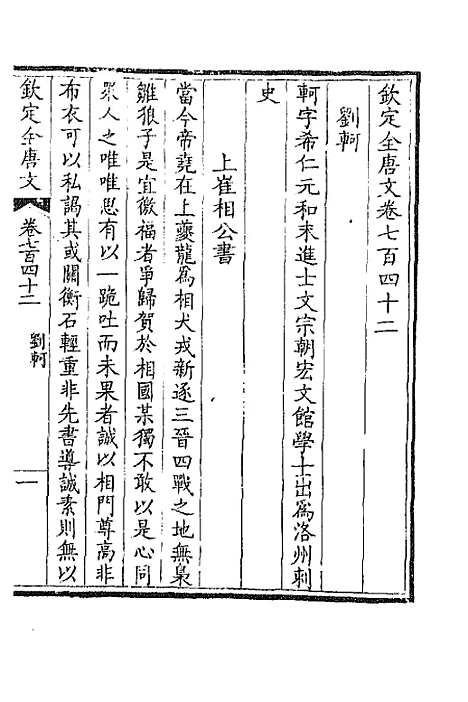 欽定全唐文卷七百四十二
劉軻
軻字希仁元和末進士文宗朝宏文館學士出爲洛州刺
史
上崔相公書
當今帝堯在上夔龍爲相犬戎新逐三晉四戰之地無梟
雛狼子是宜徼福者爭歸賀於相國某獨不敢以是心同
衆人之唯唯思有以一跪吐而未果者誠以相門尊高非
布衣可以私謁其或關衡石輕重非先書導誠素則無以
欽定全唐文
卷七百四十二
劉軻
一